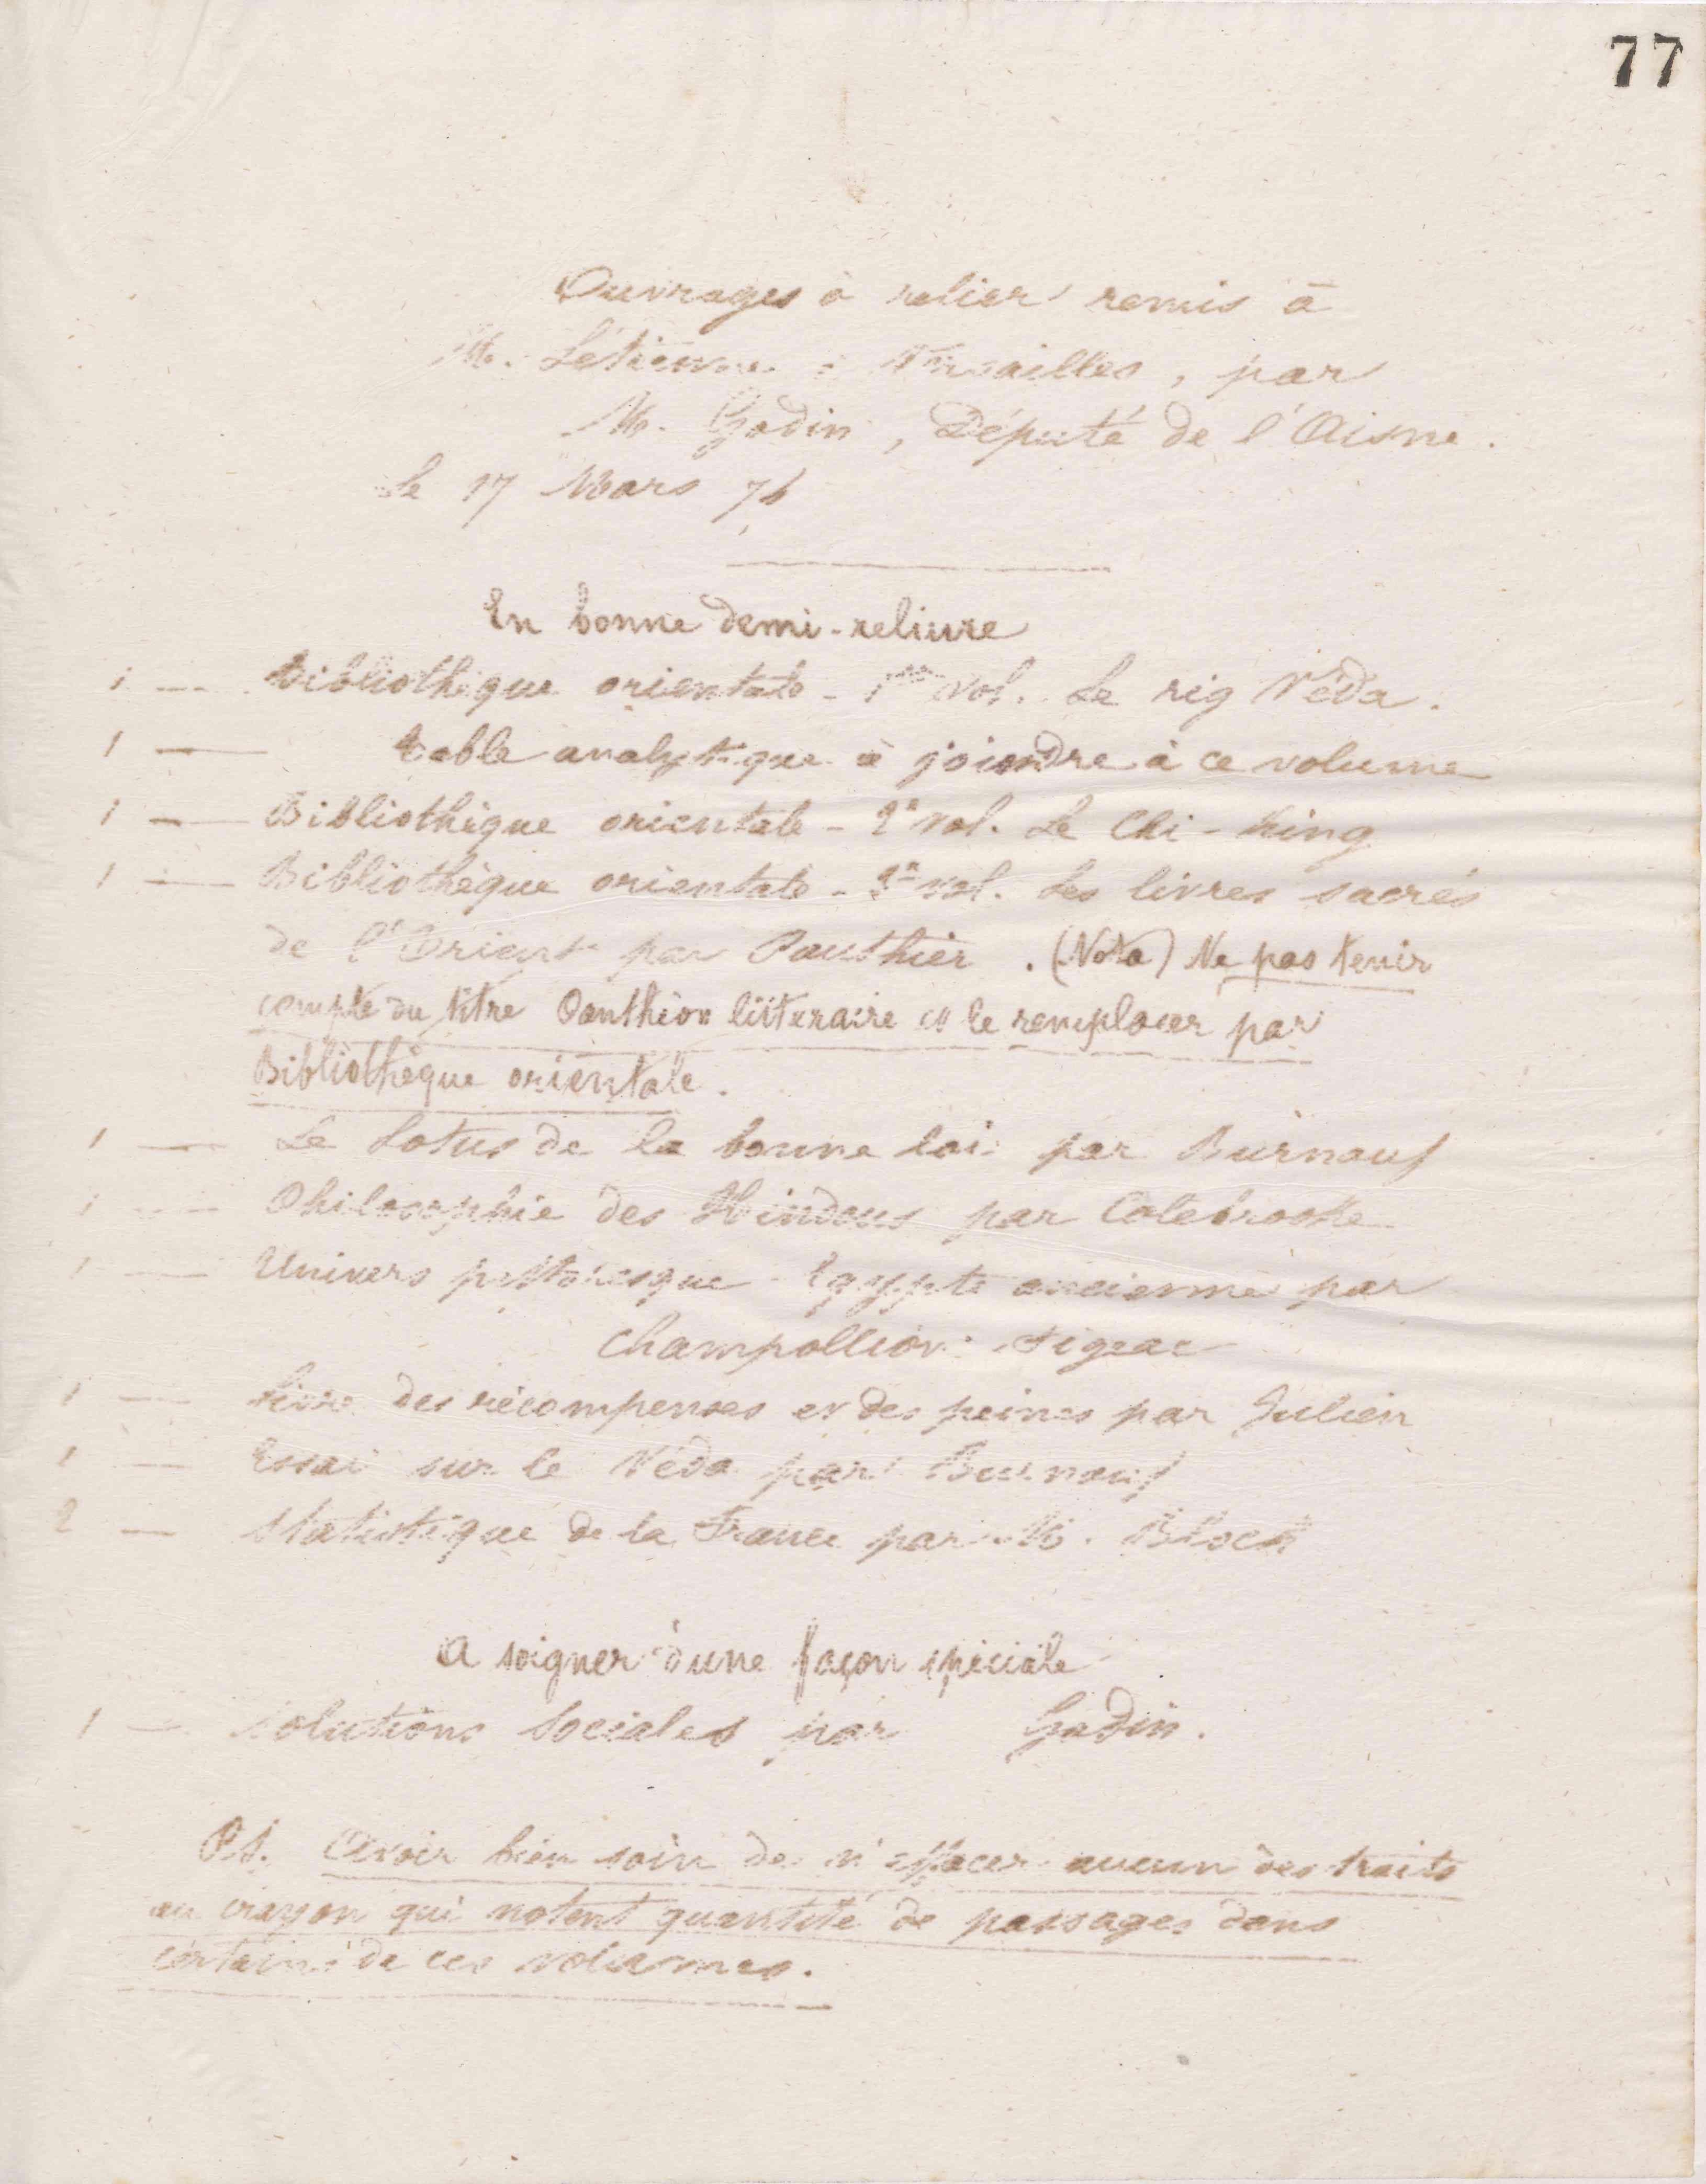 77
Ouvrages à relier remis à
M. Létienne à Versailles, par
M. Godin, Député de l'Aisne.
le 17 Mars 76
En bonne demi-reliure
1 — Bibliothèque orientale - 1er vol. Le rig Véda.
1 — table analytique à joindre à ce volume
1 — Bibliothèque orientale - 2e vol. Le Chi-King
1 — Bibliothèque orientale - vol. Les livres sacrés
de l'Orient par Pauthier. (Nota) Ne pas tenir
compte du titre Panthéon littéraire et le remplacer par
Bibliothèque orientale.
1 — Le Lotus de la bonne loi par Burnouf
1 — Philosophie des Hindous par Colebrooke
1 — Univers pittoresque Egypte ancienne par
Champollion-Figeac
1 — Livre des récompenses et des peines par Julien
1 — Essai sur le Véda par Burnouf
2 — Statistique de la France par M. Block
A soigner d'une façon spéciale
1 — Solutions Sociales par Godin.
P.S. Avoir bien soin de n'effacer aucun des traits
au crayon qui notent quantité de passages dans
certains de ces volumes.